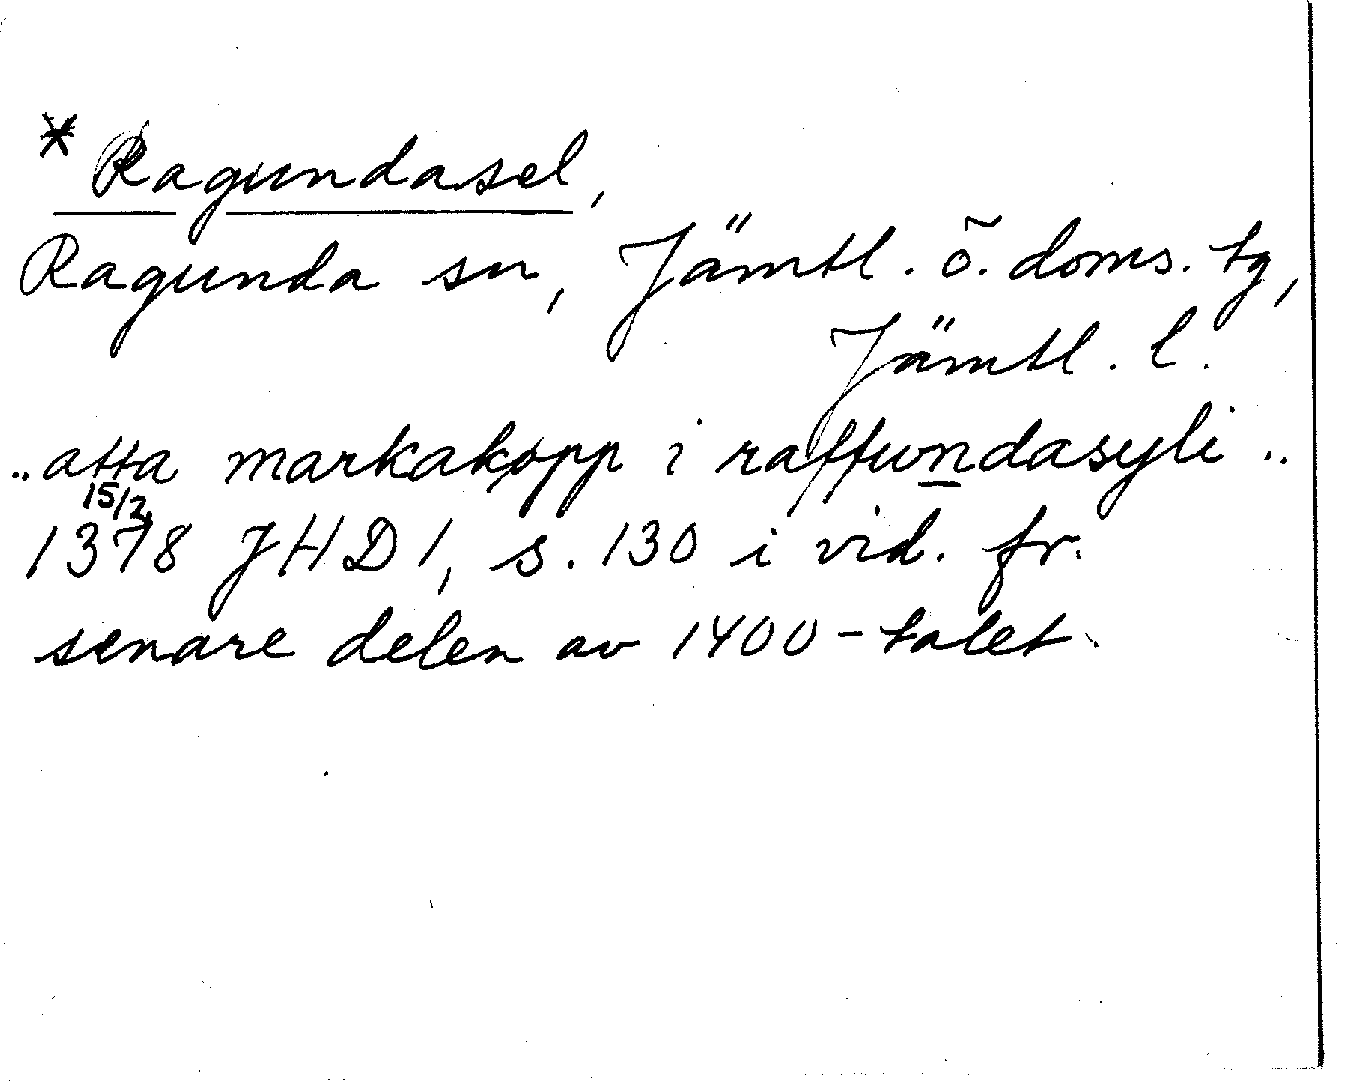 * Ragundasel,
Ragunda sn, Jämtl. ö. doms. tg,
Jämtl. l.
.. atta markakøpp i raffundasyli ..
15/2
1378 JHD 1, s. 130 i vid. fr.
senare delen av 1400-talet